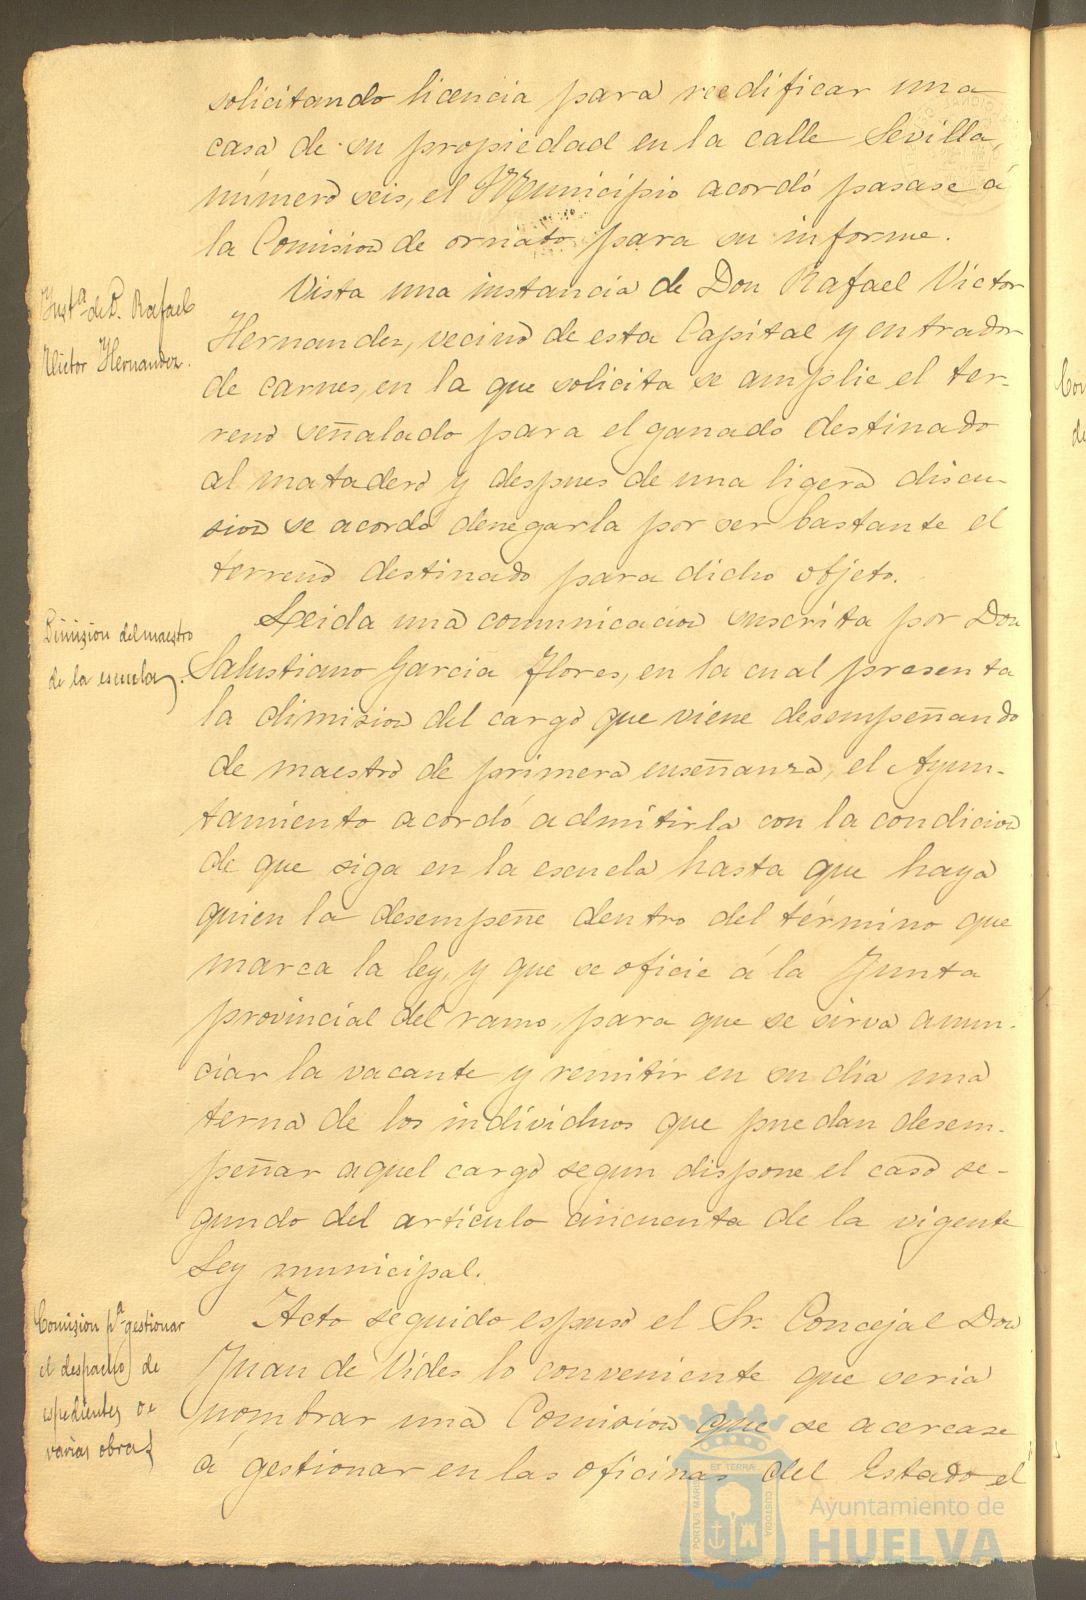 solicitando licencia para reedificar una
casa de su propiedad en la calle Sevilla,
número seis, el Municipio acordó pasase á
la Comision de ornato para su informe.
Inst.ª de D. Rafael
Victor Hernandez.
Vista una instancia de Don Rafael Victor
Hernandez, vecino de esta Capital y entrador
de carnes, en la que solicita se amplie el ter-
reno señalado para el ganado destinado
al matadero y despues de una ligera discu-
sion se acordó denegarla por ser bastante el
terreno destinado para dicho objeto.
Dimision del maestro
de la escuela.
Leida una comunicacion suscrita por Don
Salustiano Garcia Flores, en la cual presenta
la dimision del cargo que viene desempeñando
de maestro de primera enseñanza, el Ayun-
tamiento acordó admitirla con la condicion
de que siga en la escuela hasta que haya
quien la desempeñe dentro del término que
marca la ley, y que se oficie á la Junta
provincial del ramo, para que se sirva anun-
ciar la vacante y remitir en su dia una
terna de los individuos que puedan desem-
peñar aquel cargo segun dispone el caso se-
gundo del articulo cincuenta de la vigente
Ley municipal.
Comision p.ª gestionar
el despacho de
espedientes de
varias obras
Acto seguido espuso el Sr. Concejal Don
Juan de Vides lo conveniente que seria
nombrar una Comision que se acercase
á gestionar en las oficinas del Estado el
PORTUS MARIS ET TERRÆ CUSTODIA
Ayuntamiento de
HUELVA